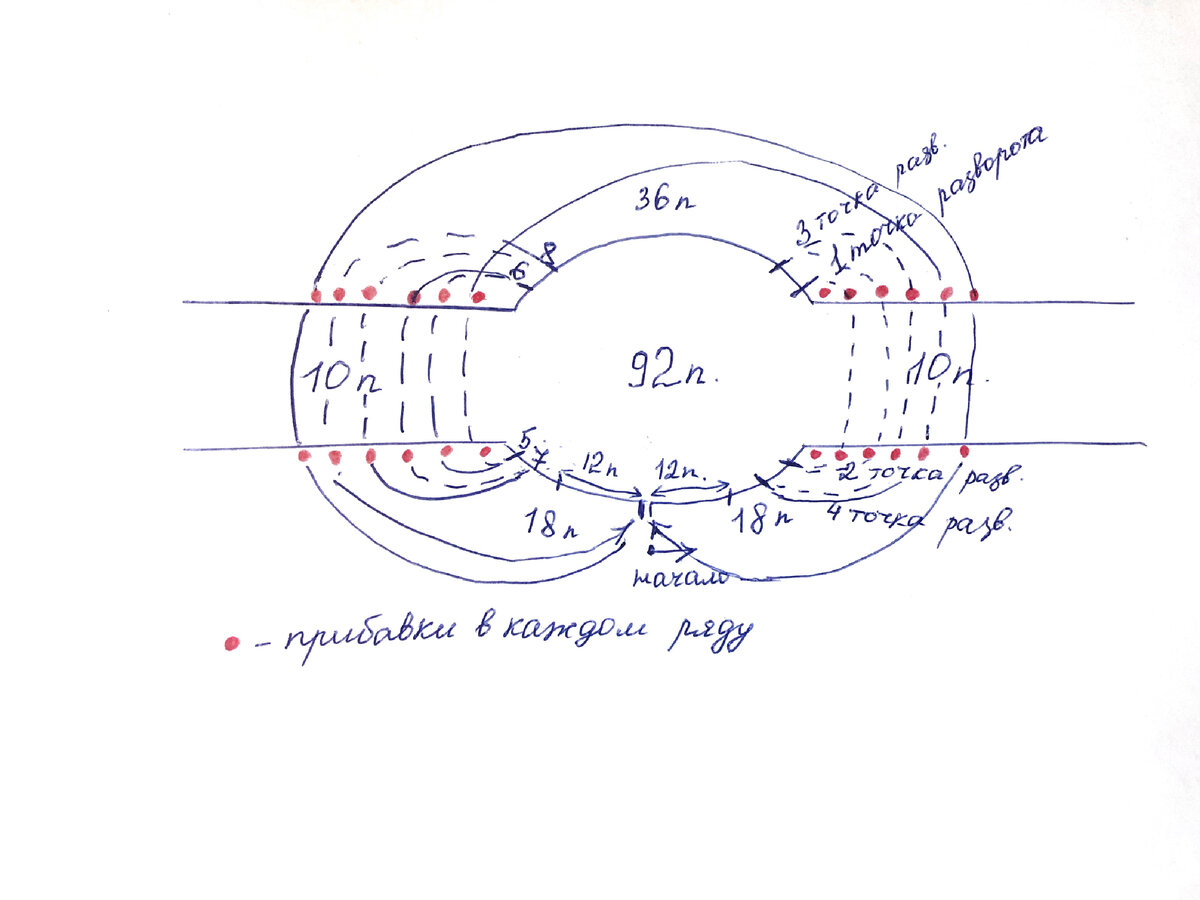 3 точка разв.
1 точка разворота
36 п
8
6
10 п
92 п.
10 п.
5
7
12 п
12 п.
2 точка разв.
18 п
18 п
4 точка разв.
начало
- прибавки в каждом ряду